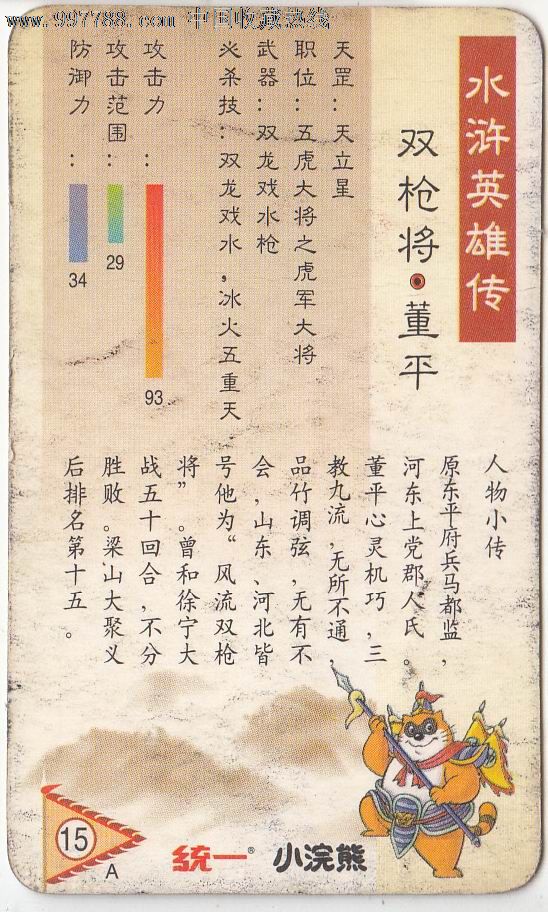 www.997788.com 中国收藏热线
水浒英雄传
双枪将·董平
天罡：天立星
职位：五虎大将之虎军大将
武器：双龙戏水枪
必杀技：双龙戏水，冰火五重天
攻击力：
93
攻击范围：
29
防御力：
34
人物小传
原东平府兵马都监，
河东上党郡人氏。
董平心灵机巧，三
教九流，无所不通，
品竹调弦，无有不
会，山东、河北皆
号他为“风流双枪
将”。曾和徐宁大
战五十回合，不分
胜败。梁山大聚义
后排名第十五。
15
A
统一® 小浣熊